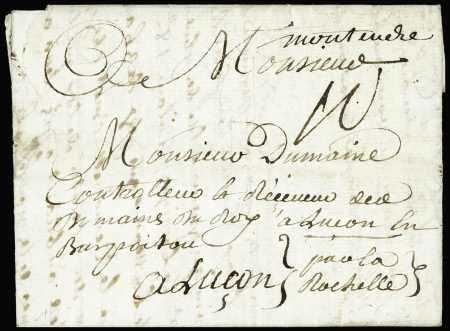 montendre
Monsieur
Monsieur Dumaine
Controlleur & Receveur des
Domaines du Roy a Luçon En
Baspoitou
a Luçon
par la
Rochelle